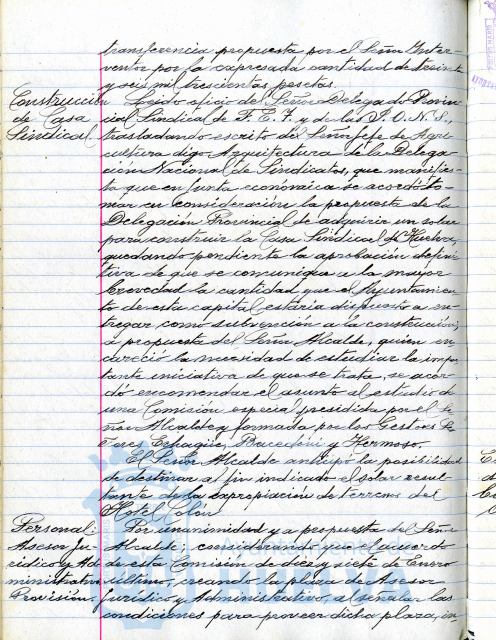 transferencia propuesta por el Señor Inter-
ventor por la expresada cantidad de treinta
y seis mil trescientas pesetas.
Construcción
de Casa
Sindical
Leido oficio del Señor Delegado Provin-
cial Sindical de F.E.T. y de las J.O.N.S.,
trasladando escrito del Señor Jefe de Agri-
cultura digo Arquitectura de la Delega-
ción Nacional de Sindicatos, que manifies-
ta que en Junta económica se acordó to-
mar en consideración la propuesta de la
Delegación Provincial de adquirir un solar
para construir la Casa Sindical de Huelva,
quedando pendiente la aprobación defini-
tiva de que se comunique a la mayor
brevedad la cantidad que el Ayuntamien-
to de esta capital estaria dispuesto a en-
tregar como subvención a la construcción;
a propuesta del Señor Alcalde, quien en-
careció la necesidad de estudiar la impor-
tante iniciativa de que se trata, se acor-
dó encomendar el asunto al estudio de
una Comisión especial presidida por el Se-
ñor Alcalde y formada por los Gestores Se-
ñores y Hermoso.
El Señor Alcalde anticipó la posibilidad
de destinar al fin indicado el solar resul-
tante de la expropiación de terrenos del
Hotel Colón.
Personal:
Asesor Ju-
ridico y Ad-
ministrativo
Provisión.
Por unanimidad y a propuesta del Señor
Alcalde, considerando que el acuerdo
de esta Comisión de diez y siete de Enero
último, creando la plaza de Asesor
Juridico y Administrativo, al señalar las
condiciones para proveer dicha plaza, in-